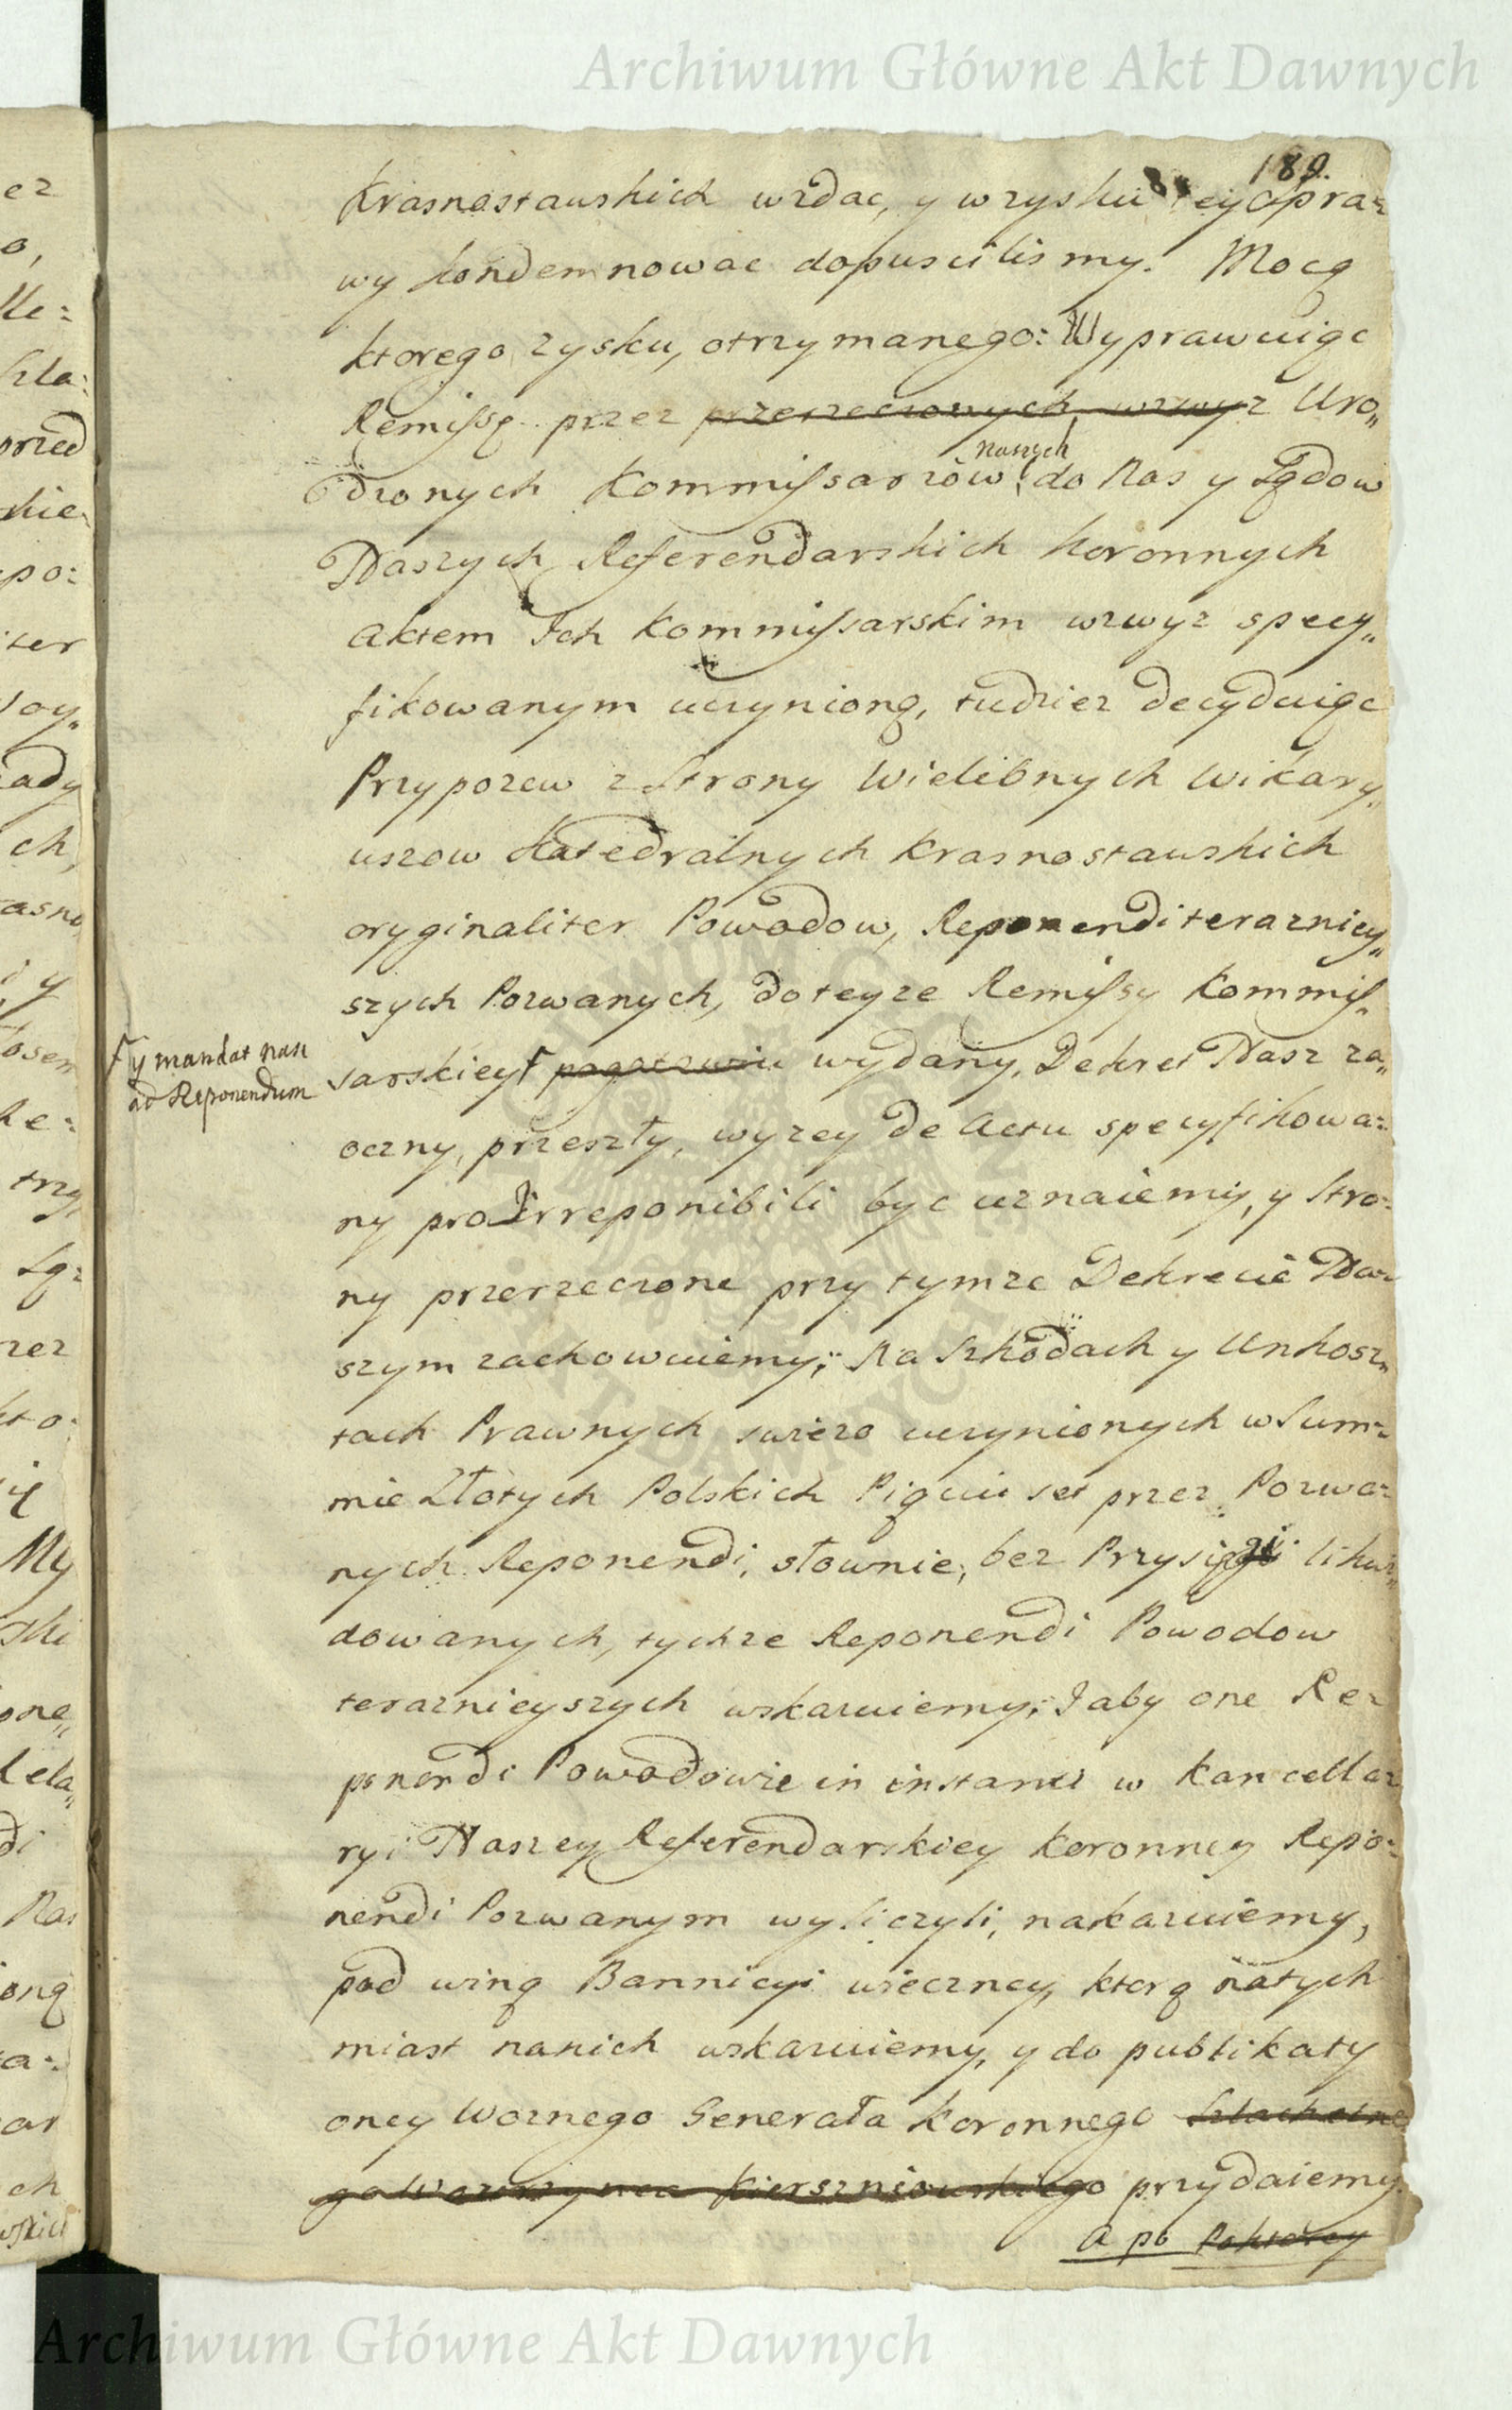 Archiwum Główne Akt Dawnych
189.
Krasnostawskich wzdac, y w zysku tey Spra=
wy kondemnowac dopuscilismy. Mocą
ktorego zysku, otrzymanego: Wyprawuiąc
Remissę przez przerzeczonych, wzwyz Uro„
dzonych Kommissarzów naszych do Nas y Sądow
Naszych Referendarskich Koronnych
Aktem Ich Kommissarskim wzwyz specy„
fikowanym uczynioną, tudziez decyduiąc
Przypozew z Strony Wielebnych Wikary„
uszow Katedralnych Krasnostawskich
oryginaliter Powodow, Reponendi terazniey„
szych Pozwanych, do teyze Remissy Kommis„
y mandat nasz
ad Reponendum
sarskiey wydany, Dekret Nasz za„
oczny, przeszły, wyzey de Actu specyfikowa=
ny pro Irreponibili byc uznaiemy, y Stro=
ny przerzeczone przy tymze Dekrecie Na=
szym zachowuiemy; Na Szkodach y Unkosz„
tach Prawnych swiezo uczynionych w Sum=
mie Złotych Polskich Piąciu set przez Pozwa=
nych Reponendi, słownie, bez Przysięgi likwi„
dowanych, tychze Reponendi Powodow
teraznieyszych wskazuiemy; I aby one Re=
ponendi Powodowie in instanti w Kancella=
ryi Naszey Referendarskiey Koronney Repo=
nendi Pozwanym wyliczyli, nakazuiemy,
pod winą Bannicyi wieczney, ktorą natych
miast nanich wskazuiemy, y do publikaty
oney Woznego Generała Koronnego Szlachetne
go Wawrzynca Kierszniewskiego przydaiemy.
A po Poktorey
Archiwum Główne Akt Dawnych